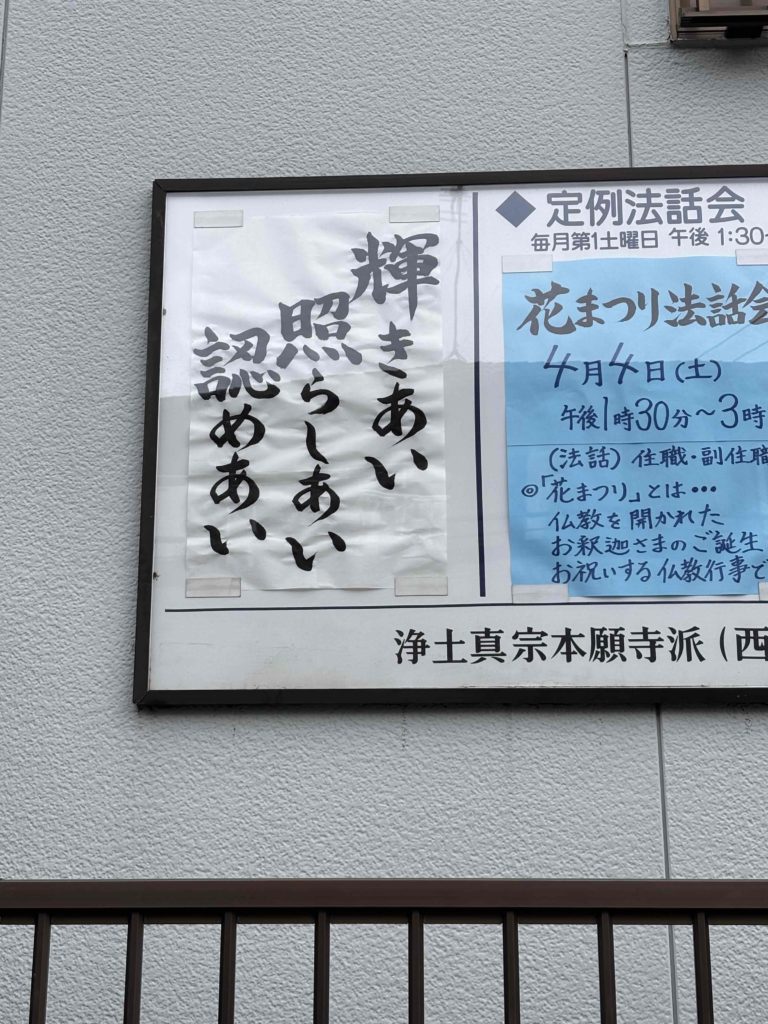 輝きあい
照らしあい
認めあい
◆定例法話会
毎月第1土曜日 午後 1:30~
花まつり法話会
4月4日(土)
午後1時30分~3時
(法話) 住職・副住職
◎「花まつり」とは・・・
仏教を開かれた
お釈迦さまのご誕生
お祝いする仏教行事で
浄土真宗本願寺派(西